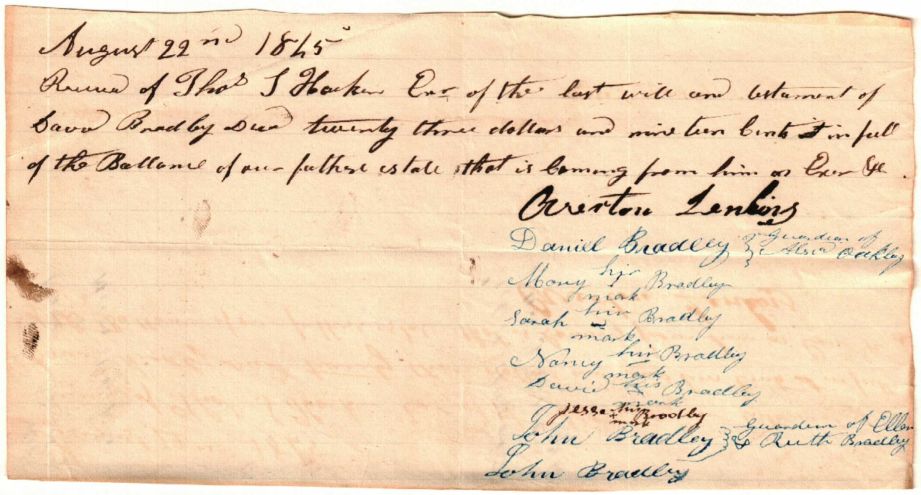 August 22nd 1845
Received of Thos S Hocker Exr of the last will and testament of
Davd Bradley Decd twenty three dollars and nineteen Cents it in full
of the Ballance of our fathers estate that is Coming from him as Exer &c
Overton Jenkins
Daniel Bradley & Guardian of
Oakley
Mary her Bradley
mark
Sarah her Bradley
mark
Nancy her Bradley
mark
David his Bradley
mark
Jesse his Bradley
mark
John Bradley & Guardian of Ellen
& Ruth Bradley
John Bradley